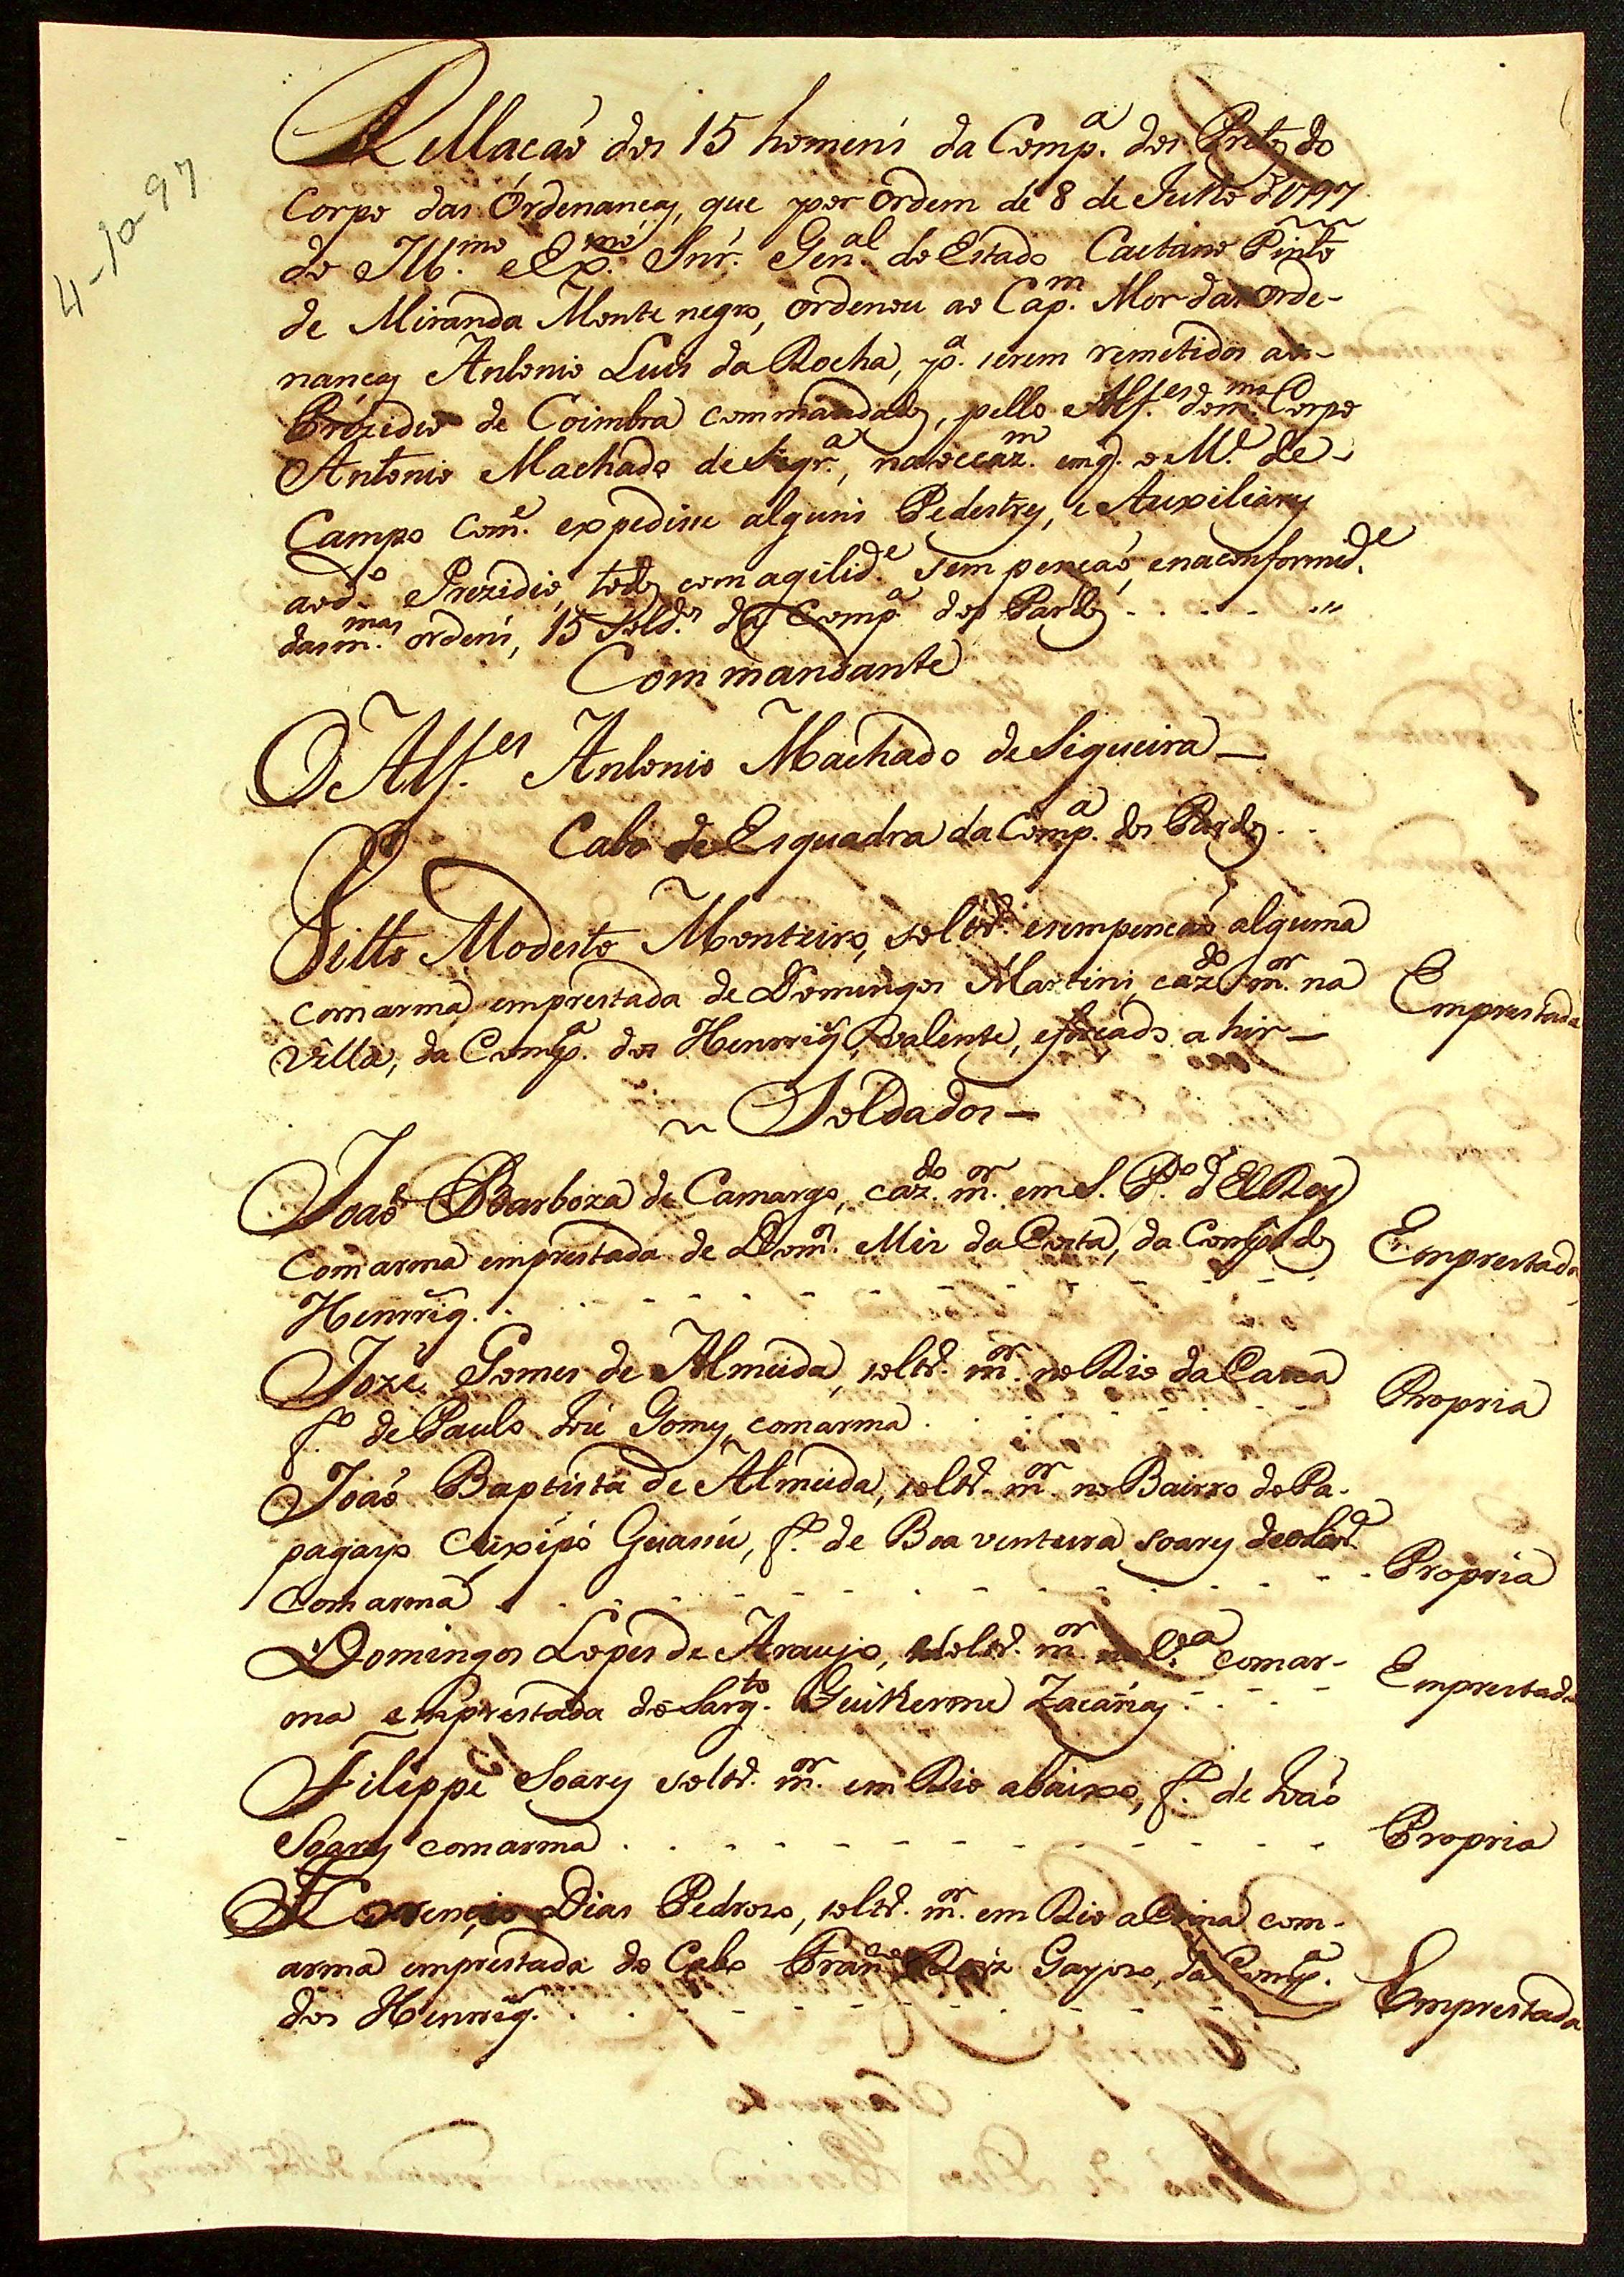 4-10-97
Rellacaõ dos 15 homens da Comp.ª dos Pretos do
Corpo das Ordenancas, que por ordem de 8 de Julho d'1797
do Ill.mo eEx.mo Snr. Gen.al do Estado Caetano Pinto
de Miranda Monte negro, ordenou ao Cap.m Mor das Orde-
nancas Antonio Luis da Rocha, p.ª serem remetidos ao-
Prezidio de Coimbra commandados, pello Alf.es dom.mo Corpo
Antonio Machado de Siqr.ª, na occaz.m emq. o M.e de-
Campo Com.e expedisse alguns Pedestres, e Auxiliares
aod.o Prezidio, todos com agilid.e sem pencaõ, enaconformid.e
dasm.mas ordens, 15 Sold.os da Comp.ª dos Pardos
Commandante
O Alf.es Antonio Machado de Siqueira
Cabo de Esquadra da Comp.ª dos Pardos
Modesto Monteiro, soltr.o esempencaõ alguma
comarma emprestada de Domingos Martins, caz.do m.or na
Villa, da Comp.ª dos Henrriq.s, valente, a hir
Emprestada
Soldados
Joaõ Barboza de Camargo, caz.do m.or em S. P.o d'ElRey
Comarma emprestada de Dom.os Miz da Costa, da Comp.ª dos
Henrriq.s
Emprestada
Jozé Gomes de Almeida, soltr.o m.or no Rio da Caza
f.o de Paulo Joze Gomes, comarma
Propria
Joaõ Baptista de Almeida, soltr.o m.or no Bairro do Pa-
pagayo Cuxipó Guasú, f.o de Boa ventura soares
comarma
Propria
Domingos Lopes de Araujo, soltr.o m.or na V.ª comar-
ma emprestada do Sarg.to Guilherme Zacarias
Emprestada
Filippe Soares soltr.o m.or em Rio abaixo, f.o de Joaõ
Soares comarma
Propria
Florencio Dias Pedrozo, soltr.o m.or em Rio aCima com-
arma emprestada do Cabo Fran.co Roiz Gayozo, da Comp.ª
dos Henrriq.s
Emprestada